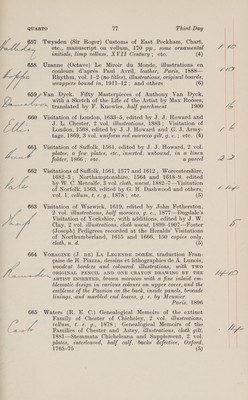 QUARTO 77 Third Day
657 Twysden (Sir Roger) Customs of East Peckham, Chart.
etc., manuscript on vellum, 170 pp., some ornamental
initials, limp vellum, XVII Century ; etc. (4)
658 Uzanne (Octave) Le Miroir du Monde, illustrations en
couleurs d'après Paul Avril, leather, Paris, 1888—
Rhythm, vol. 1-2 (no titles), illustrations, original boards,
wrappers bound in, 1911-12 ; and others (6)
659 Van Dyck. Fifty Masterpieces of Anthony Van Dyck,
with a Sketch of the Life of the Artist by Max Rooses,
translated by F. Knowles, half parchment 1900
660 Visitation of London, 1633-5, edited by J. J. Howard and
J. L. Chester, 2 vol. illustrations, 1883 ; Visitation of
London, 1568, edited by J. J. Howard and G. J. Army-
tage, 1869, 3 vol. uniform red morocco gilt, g. e. ; etc. (4)
661 Visitation of Suffolk, 1561, edited by J. J. Howard, 2 vol.
plates, a few plates, etc., inserted, unbound, in a linen
folder, 1866 ; etc. a parcel
662 Visitations of Suffolk, 1561, 1577 and 1612 ; Worcestershire,
1682-3 ; Northamptonshire, 1564 and 1618-9, edited
by W. C. Metcalfe, 3 vol. cloth, uncut, 1882-7—Visitation
of Norfolk, 1563, edited by G. H. Dashwood and others,
vol. 1, vellum, t. e. g., 1878 ; etc. (5)
663 Visitation of Warwick, 1619, edited by John Fetherston,
2 vol. illustrations, half morocco, g. e., 1877—Dugdale's
Visitation of Yorkshire, with additions, edited by J. W.
Clay, 2 vol. illustrations, cloth uncut, 1899-1907—Foster
(Joseph) Pedigrees recorded at the Heralds' Visitations
of Northumberland, 1615 and 1666, 150 copies only,
cloth, n. d. (5)
664 Voragine (J. de) La Légende Dorée, traduction Fran-
çaise de H. Piazza, dessins et lithographies de A. Lunois,
wooded borders and coloured illustrations, with two
original pencil and one crayon drawing by the
artist inserted, brown morocco with a fine inlaid em-
blematic design in various colours on upper cover, and the
emblems of the Passion on the back, inside panels, brocade
linings, and marbled end leaves, g. e. by Meunier
Paris, 1896
665 Waters (R. E. C.) Genealogical Memoirs of the extinct
Family of Chester of Chicheley, 2 vol. illustrations,
vellum, t. e. g., 1878 ; Genealogical Memoirs of the
Families of Chester and Astry, illustrations, cloth gilt,
1881—Stemmata Chicheleana and Supplement, 2 vol.
plates, interleaved, half calf, backs defective, Oxford,
1765-75 (5)